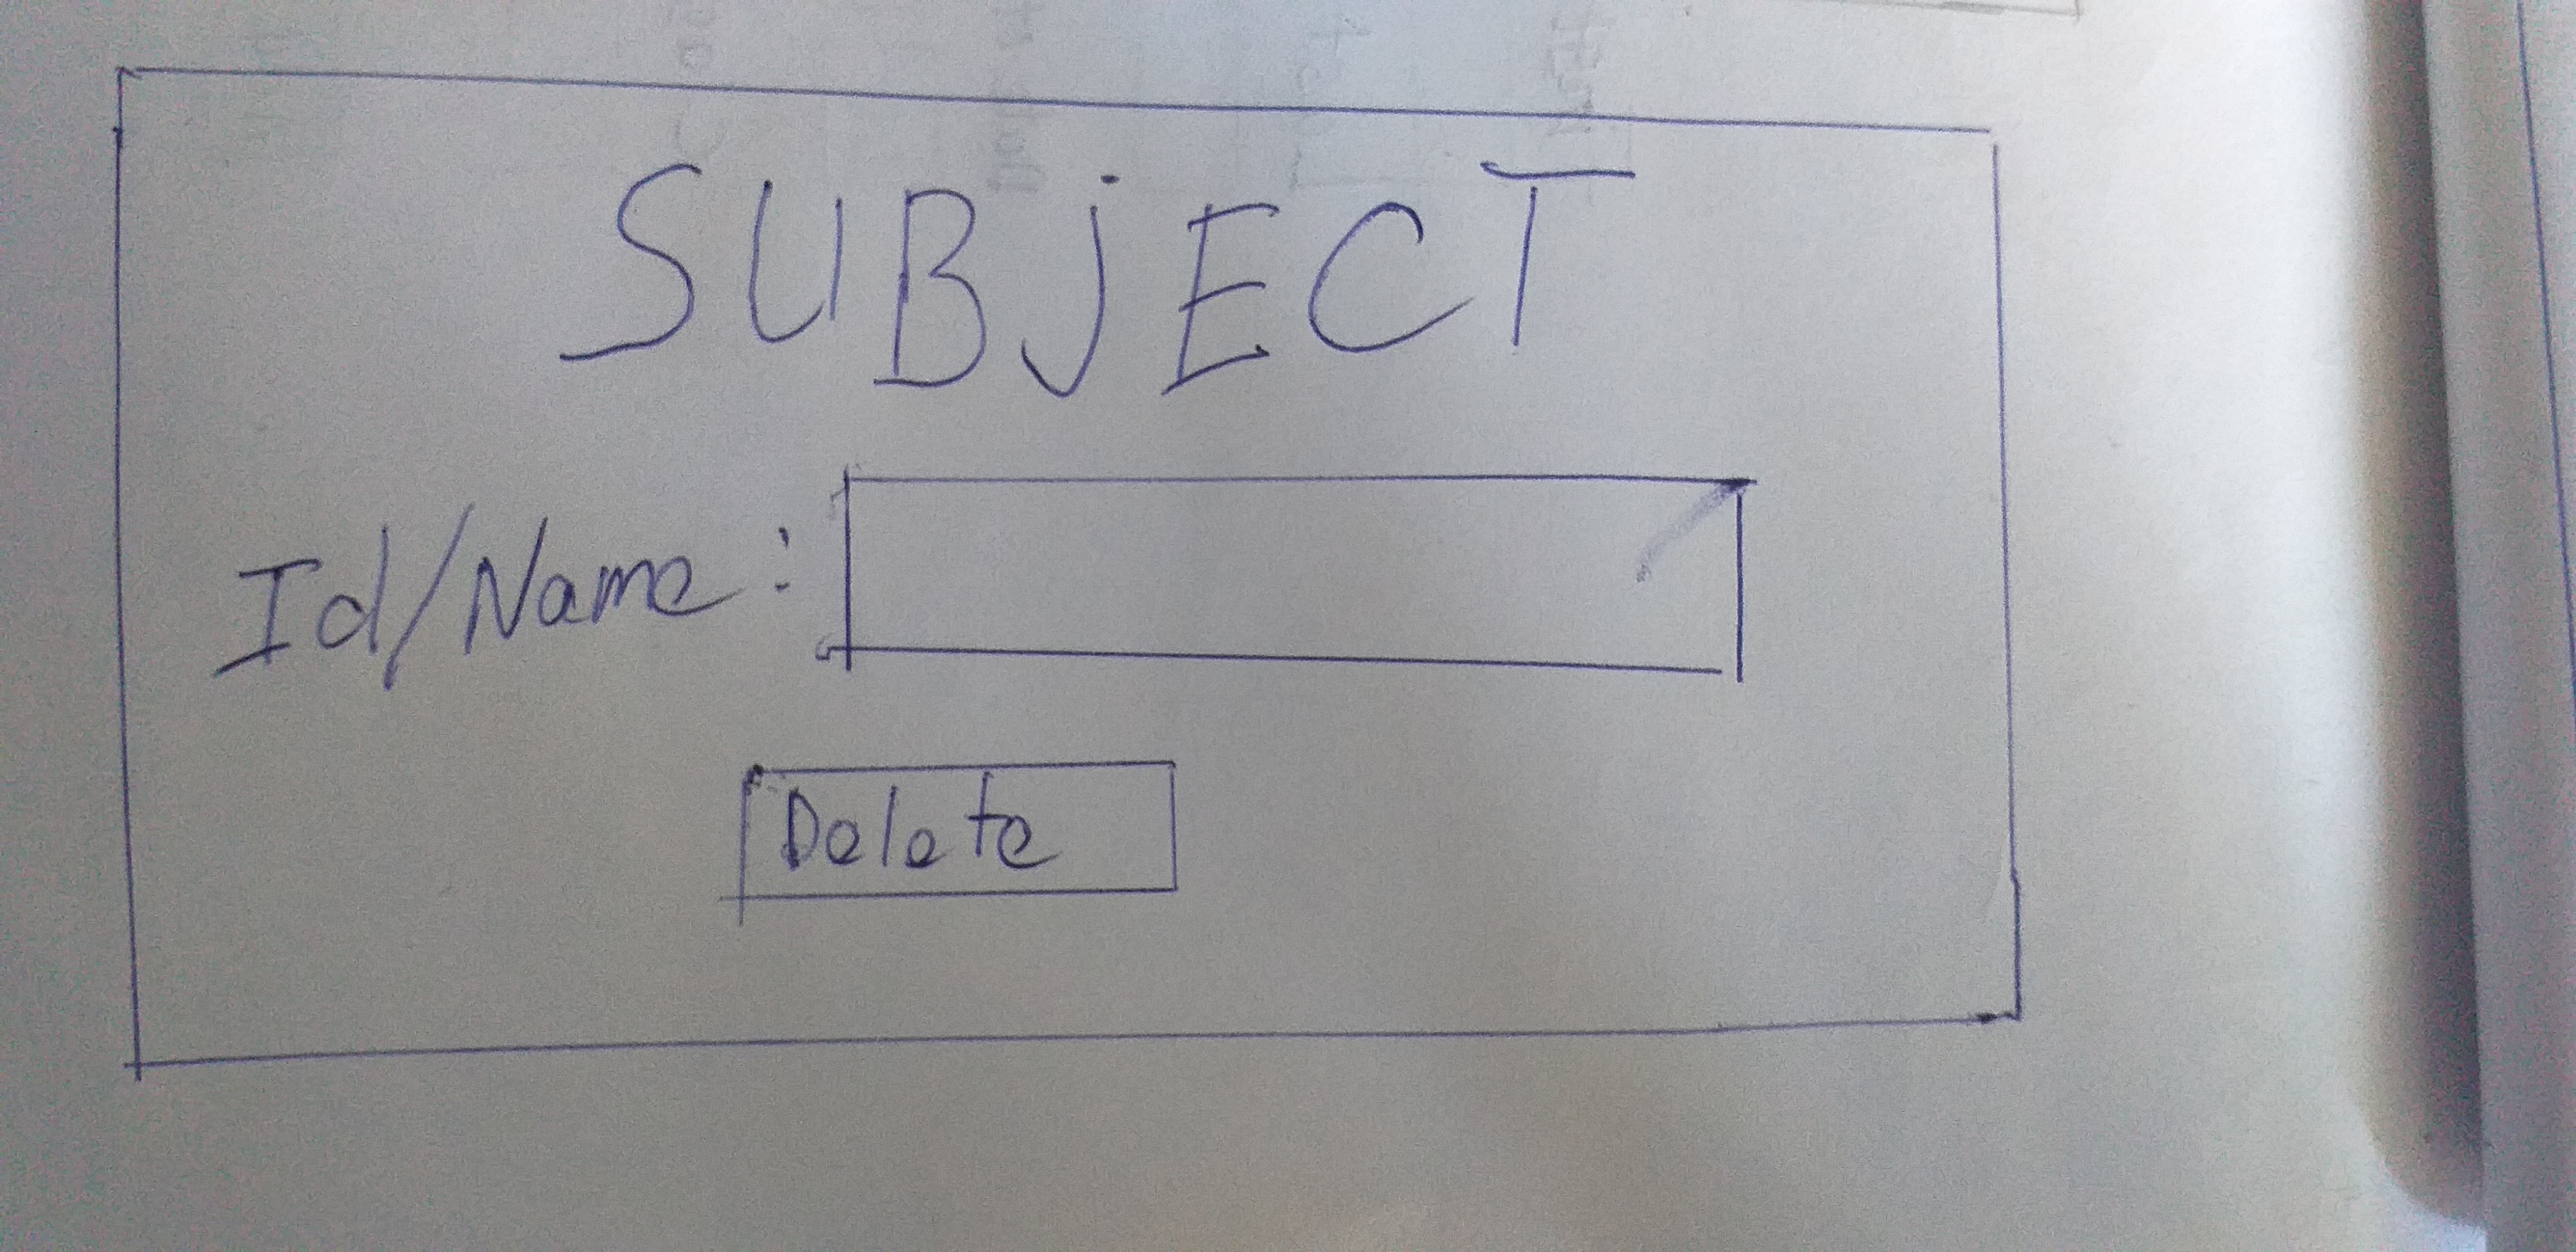 SUBJECT
Id/Name:
Delete